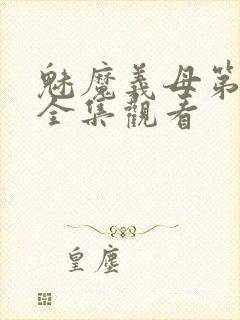 魅魔義母第
全集觀看
皇塵